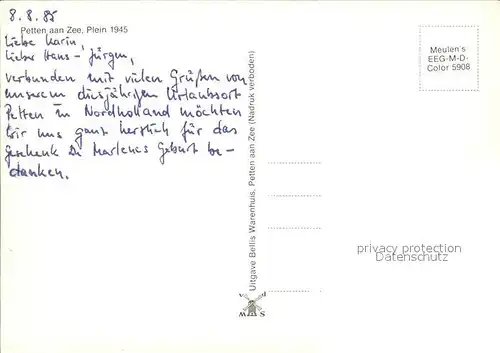 8.8.85
Petten aan Zee, Plein 1945
Liebe Karin,
lieber Hans-Jürgen,
verbunden mit vielen Grüßen von
unserem diesjährigen Urlaubsort
Petten in Nordholland möchten
wir uns ganz herzlich für das
Geschenk zu Marlenes Geburt be-
danken.
Uitgave Bellis Warenhuis, Petten aan Zee (Nadruk verboden)
Meulen's
EEG-M-D-
Color 5908
privacy protection
Datenschutz